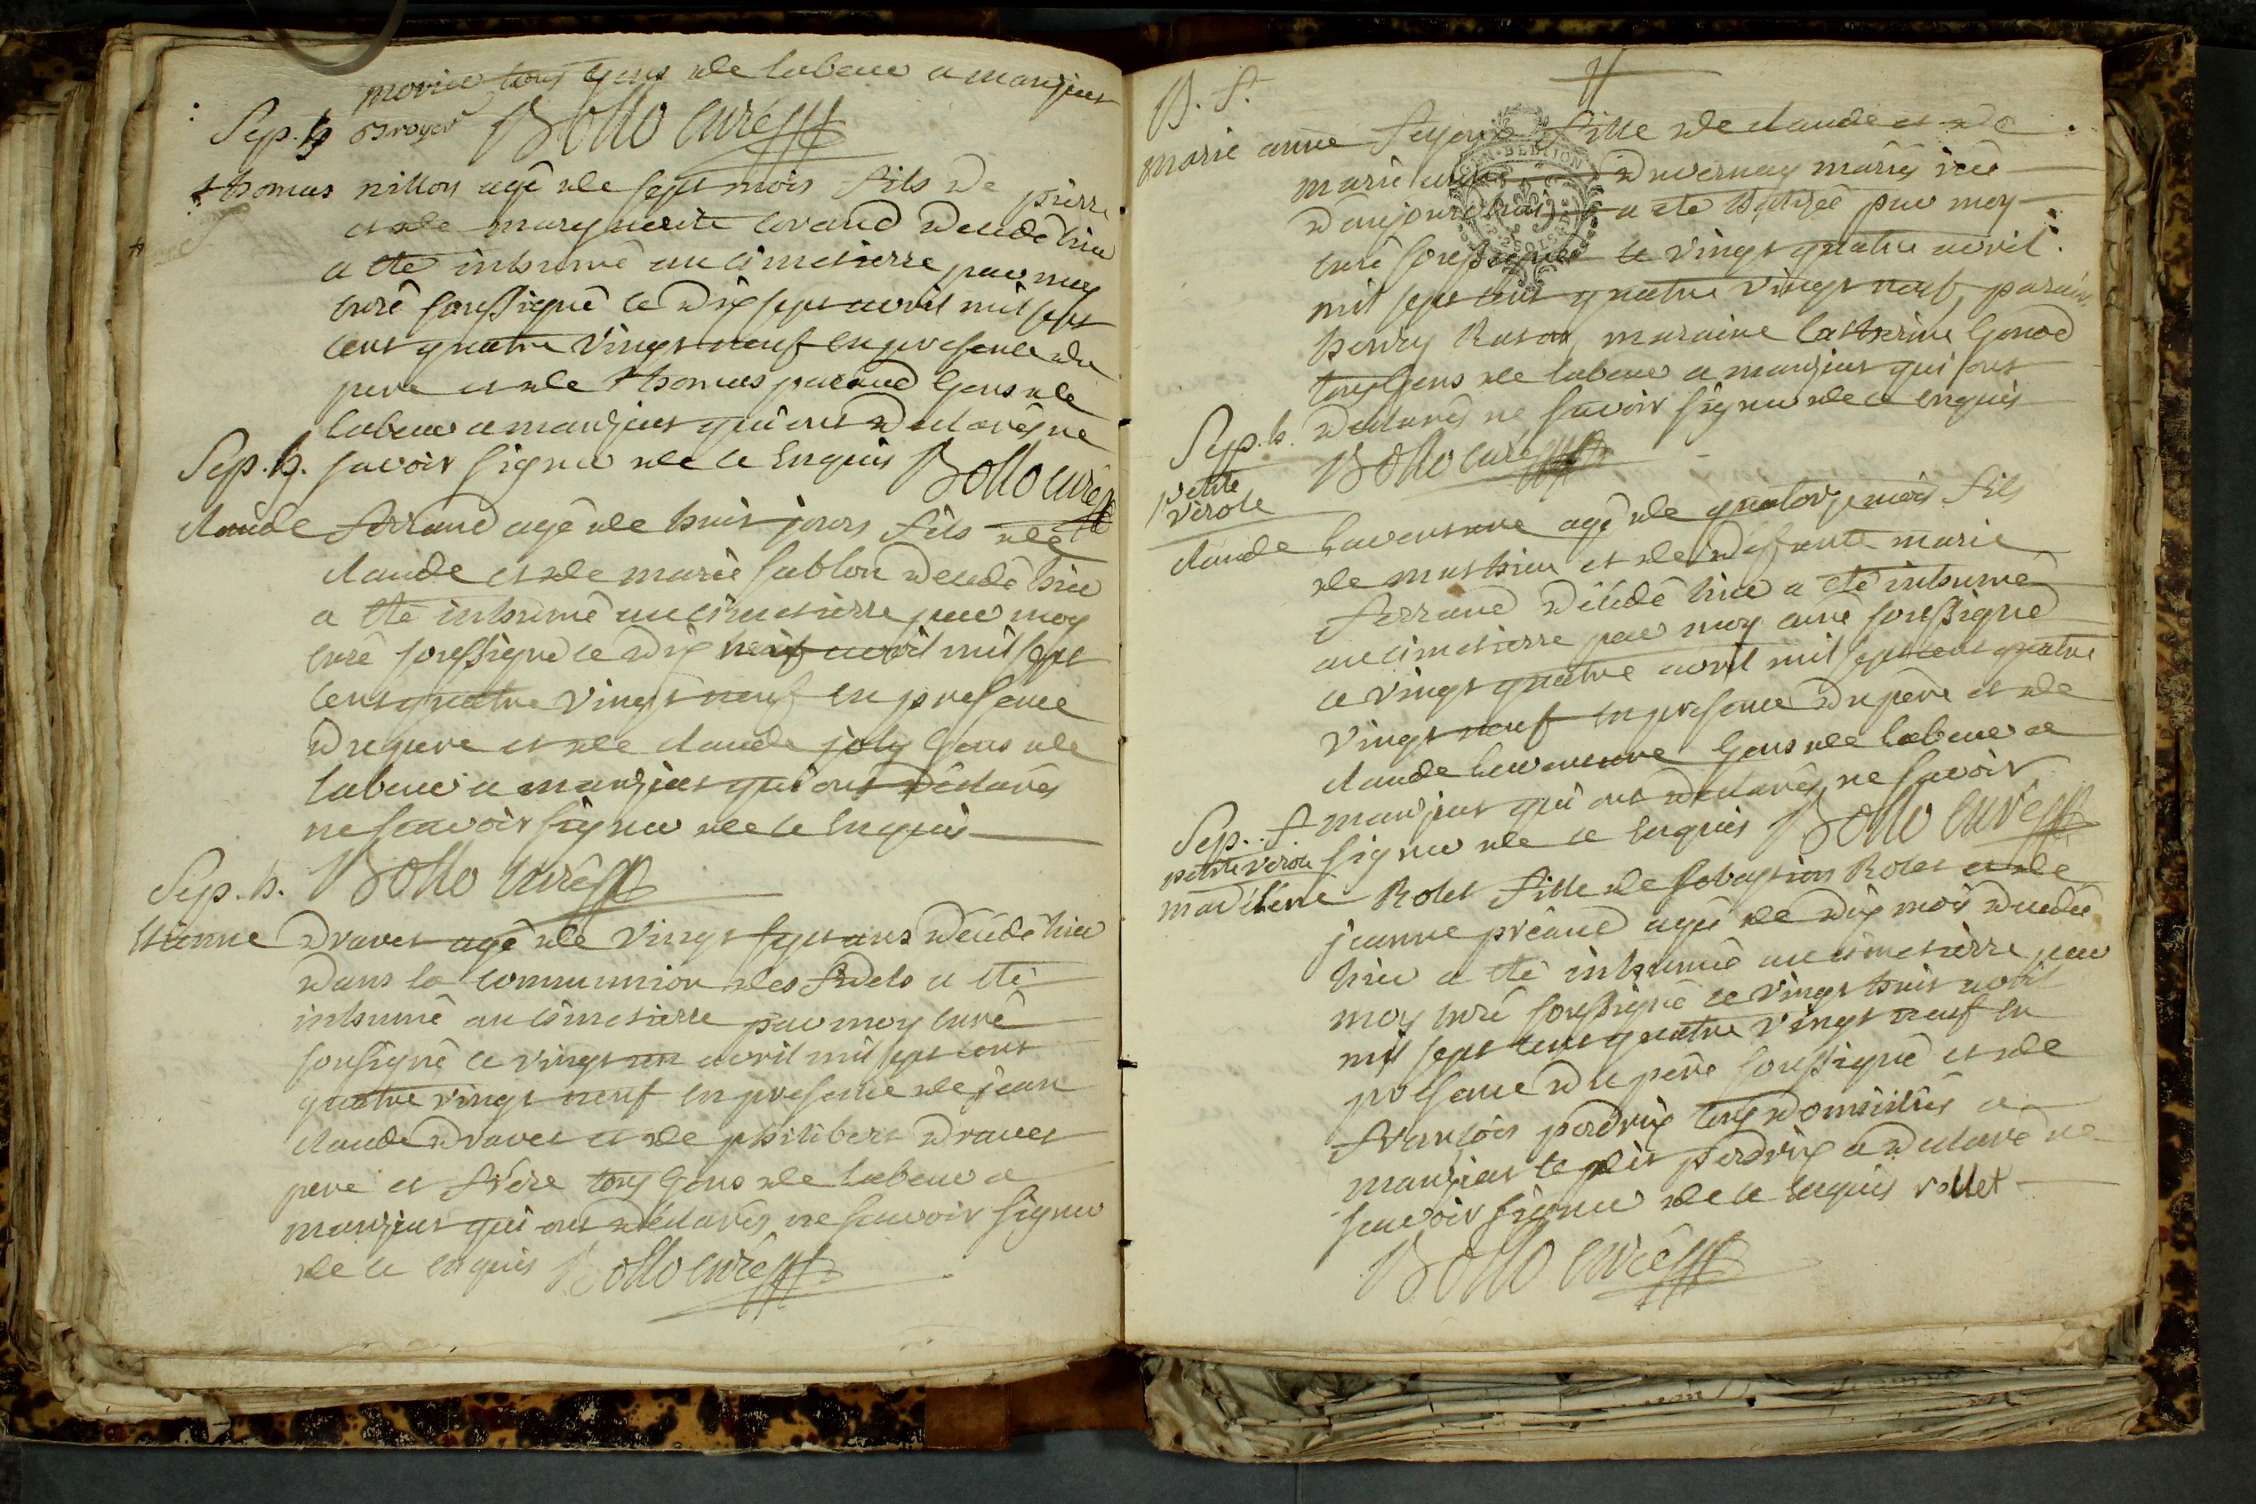 tous gens de labeur a manziat
Broyer Bollo curé
Sep. h
thomas nillon agé de sept mois fils de pierre
et de marguerite decedé hier
a ete inhumé au cimetierre par moy
curé soussigné le dix sept avril mil sept
cent quatre vingt neuf en presence du
pere et de thomas gens de
labeur a manziat qui ont declarés ne
Sep. h. savoir signer de ce enquis Bollo curé
claude ferrand agé de huit jours fils de
claude et de marie sablon decedé hier
a été inhumé au cimetierre par moy
curé soussigné le dix neuf avril mil sept
cent quatre vingt neuf en presence
du pere et de claude joly gens de
labeur a manziat qui ont déclarés
ne scavoir signer de ce enquis
Sep. h. Bollo curé
etienne dravet agé de vingt sept ans décédé hier
dans la communion des fidels a été
inhumé au cimetierre par moy curé
sousigné le vingt un avril mil sept cent
quatre vingt neuf en presence de jean
claude dravet et de philibert dravet
pere et frere tous gens de labeur a
manziat qui ont déclarés ne scavoir signer
de ce enquis Bollo curé
B. f.
marie anne fille de claude et de
marie duvernay mariés née
d'aujourdhui a ete batizée par moy
curé soussigné le vingt quatre avril
mil sept cent quatre vingt neuf, parain
henry maraine Catherine Gonod
tous gens de labeur a manziat qui ont
declarés ne savoir signer de ce enquis
Sep. h. Bollo curé
petite
verole
claude agé de quatorze mois fils
de mathieu et de defunte marie
ferrand décédé hier a eté inhumé
au cimetierre par moy curé soussigné
le vingt quatre avril mil sept cent quatre
vingt neuf en presence du père et de
claude gens de labeur a
manziat qui ont declarés ne savoir
Sep. f signer de ce enquis Bollo curé
petite verole
madelene Rolet fille de sebastien Rolet et de
jeanne préaud agée de dix mois decedée
hier a eté inhumée au cimetierre par
moy curé soussigné le vingt huit avril
mil sept cent quatre vingt neuf en
presence du père soussigné et de
francois perdrix tous domiciliés a
manziat le dit perdrix a declaré ne
scavoir signer de ce enquis rollet
Bollo curé